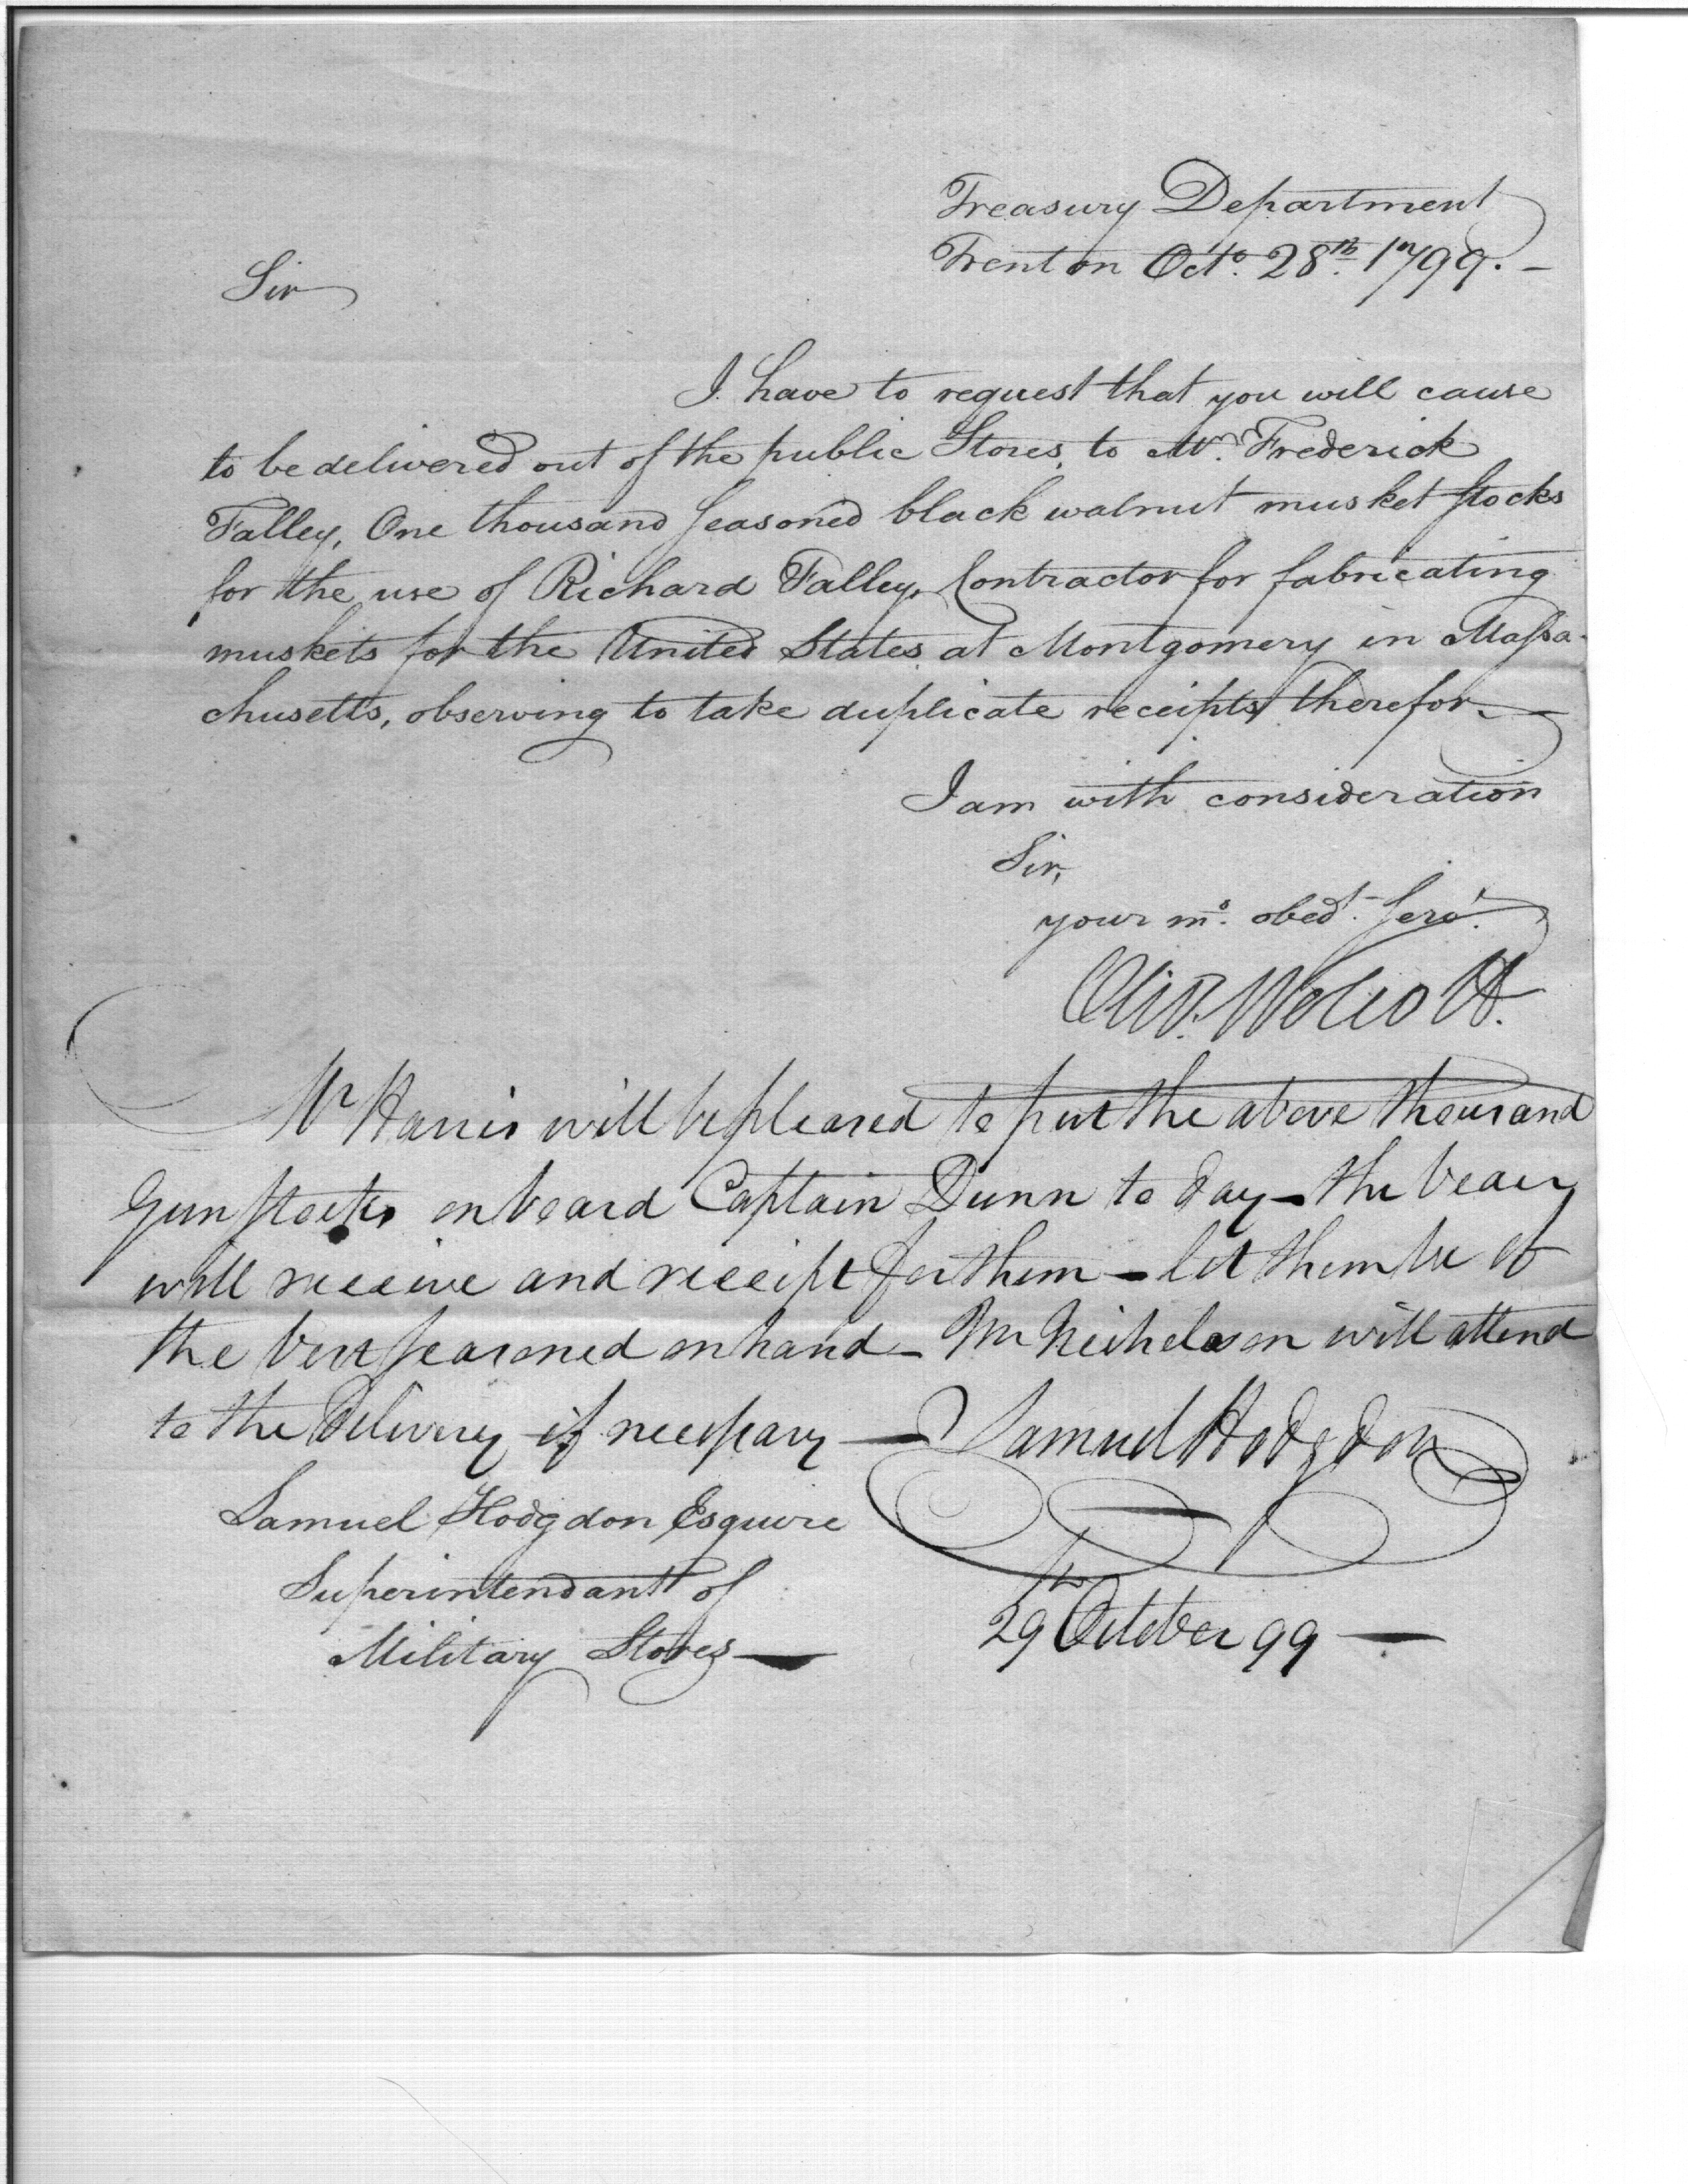 Treasury Department
Trenton Octo. 28th. 1799. -
Sir
I have to request that you will cause
to be delivered out of the public Stores, to Mr. Frederick
Falley, One thousand seasoned black walnut musket stocks
for the use of Richard Falley, Contractor for fabricating
muskets for the United States at Montgomery in Massa-
chusetts, observing to take duplicate receipts therefor.
I am with consideration
Sir,
your mo. obedt. Servt.
Oliv. Wolcott.
Mr Harris will be pleased to put the above thousand
Gun stocks on board Captain Dunn to day - the bearer
will receive and receipt for them - let them be of
the best seasoned on hand - Mr Nicholson will attend
to the Delivery if necessary - Samuel Hodgdon
Samuel Hodgdon Esquire
Superintendant of
Military Stores -
29th October 99 -